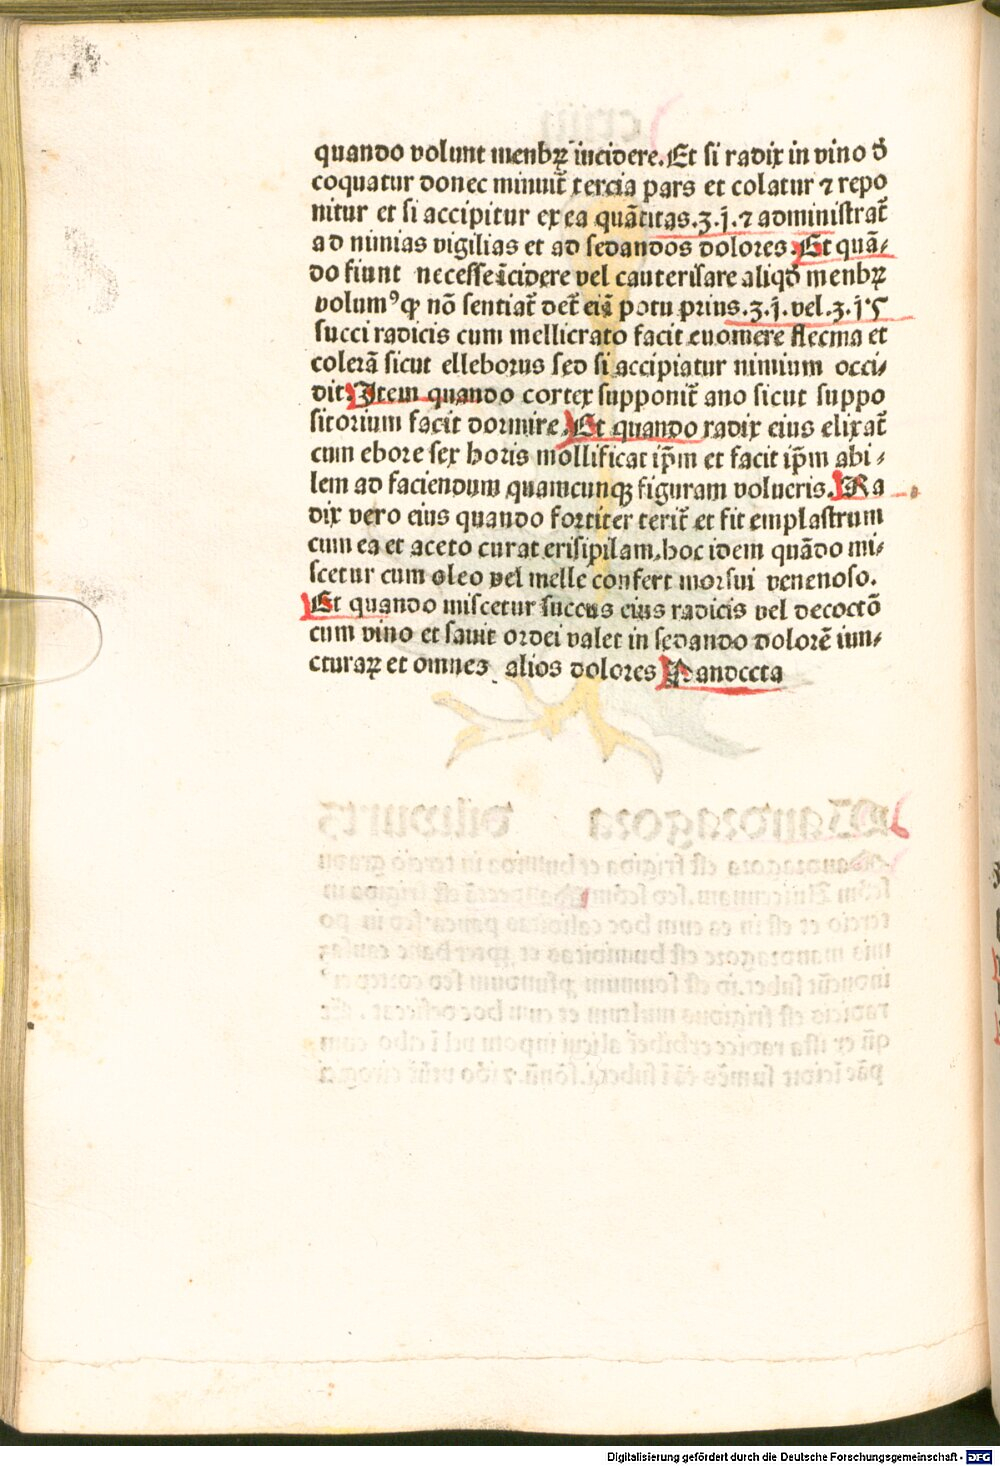 quando volunt menbꝝ incidere. Et si radix in vino đ
coquatur donec minuit̃ tercia pars et colatur ⁊ repo
nitur et si accipitur ex ea quãtitas .ʒ.j. ⁊ administrat̃
ad nimias vigilias et ad sedandos dolores. Et quã⸗
do fiunt necesse ĩcidere vel cauterisare aliqđ menbꝝ
volumꝰ qꝫ nõ sentiat̃ det̃ eiã potu prius .ʒ.j. vel .ʒ.j.ʒ
succi radicis cum mellicrato facit euomere flecma et
colerã sicut elleborus sed si accipiatur nimium occi⸗
dit. Item quando cortex supponit̃ ano sicut suppo
sitorium facit dormire. Et quando radix eius elixat̃
cum ebore sex horis mollificat ip̃m et facit ip̃m abi⸗
lem ad faciendum quamcunqꝫ figuram volueris. Ra
dix vero eius quando fortiter terit̃ et fit emplastrum
cum ea et aceto curat erisipilam. hoc idem quãdo mi⸗
scetur cum oleo vel melle confert morsui venenoso.
Et quando miscetur succus eius radicis vel decoctõ
cum vino et sauit ordei valet in sedando dolorẽ iun⸗
cturaꝝ et omnes alios dolores Pandecta
Digitalisierung gefördert durch die Deutsche Forschungsgemeinschaft - DFG